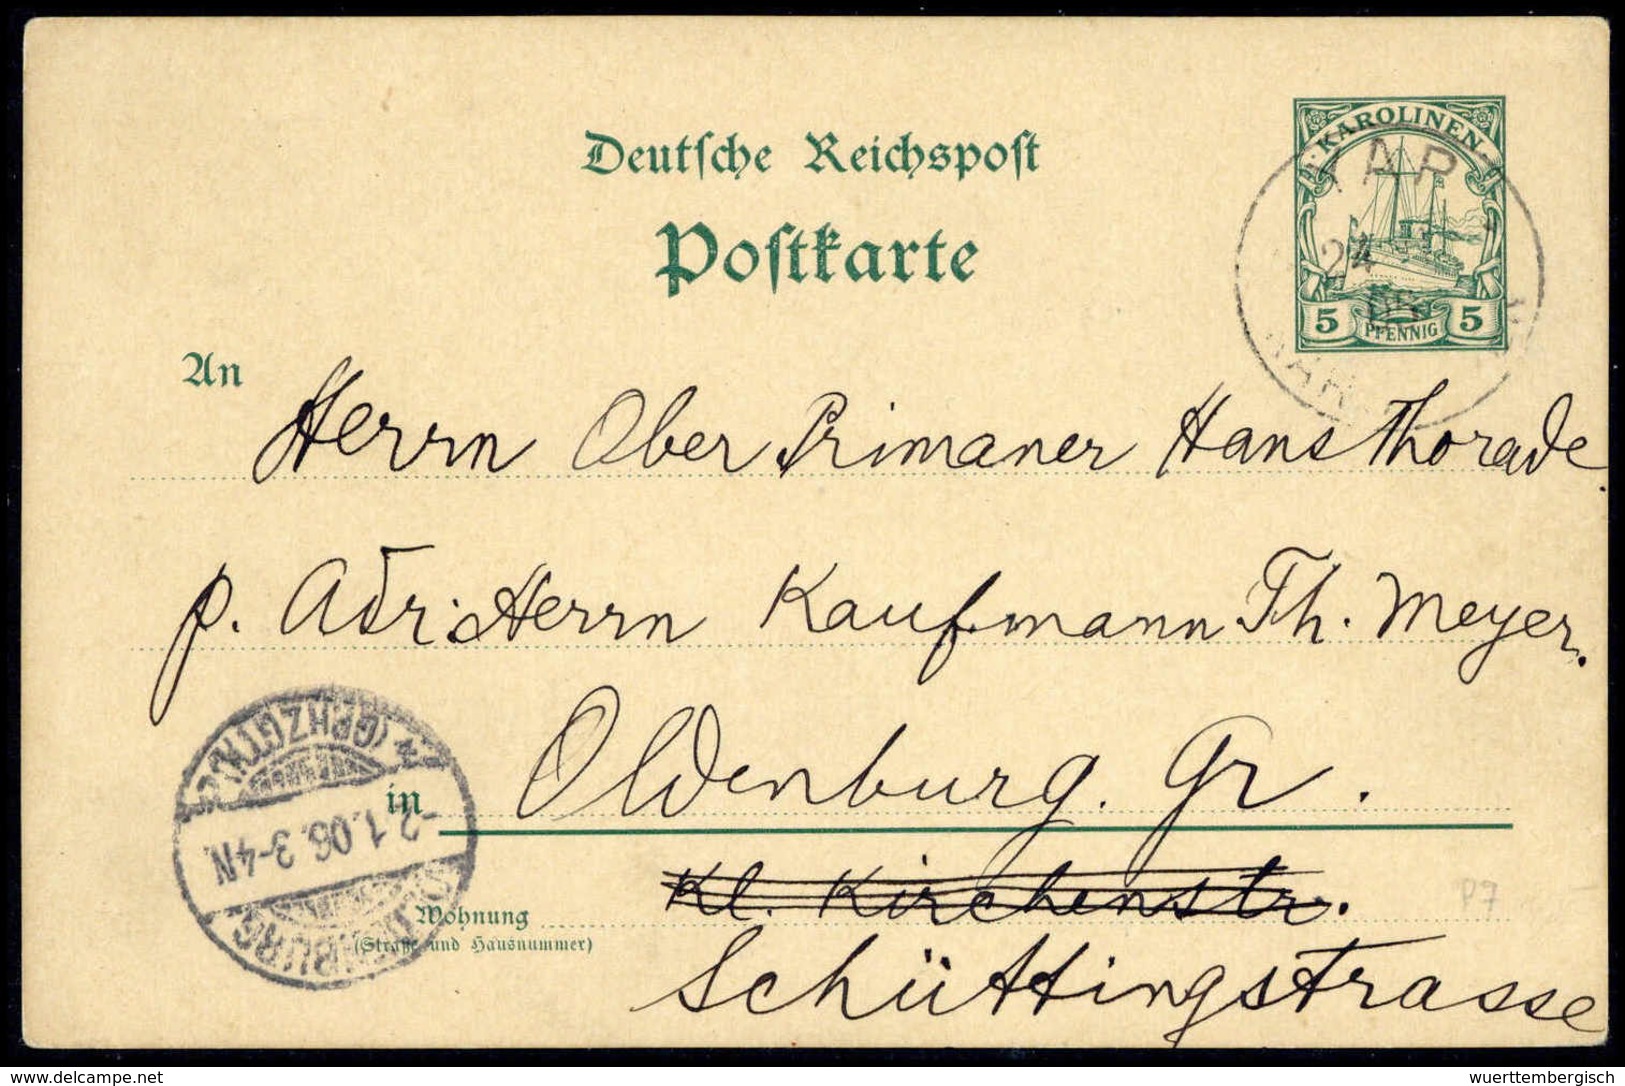 Deutsche Reichspost
Postkarte
KAROLINEN
5 PFENNIG 5
YAP
24
An Herrn Ober Primaner Hans Thorade.
p. Adr: Herrn Kaufmann Th. Meyer.
in Oldenburg. Gr.
Kl. Kirchenstr.
Wohnung
(Straße und Hausnummer)
Schüttingstrasse
OLDENBURG
* (GRHZGTH.)
-2.1.06. 3-4N.
P7
delcampe.net
wuerttembergisch